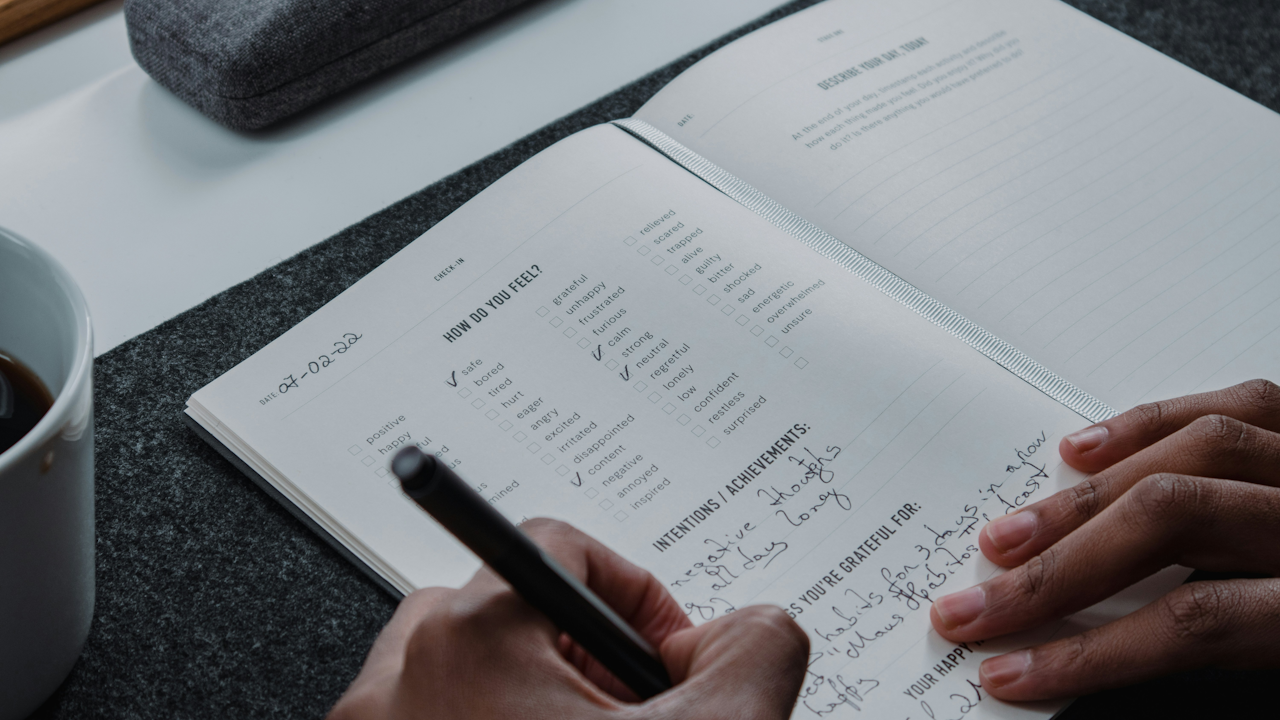 CHECK-IN
DATE: 07-02-22
HOW DO YOU FEEL?
positive
happy
safe
bored
tired
hurt
eager
angry
excited
irritated
disappointed
content
negative
annoyed
inspired
grateful
unhappy
frustrated
furious
calm
strong
neutral
regretful
lonely
low
confident
restless
surprised
relieved
scared
trapped
alive
guilty
bitter
shocked
sad
energetic
overwhelmed
unsure
INTENTIONS / ACHIEVEMENTS:
negative thoughs
all day long
YOU'RE GRATEFUL FOR:
habits for 3 days in a row
habits
happy
YOUR HAPPY
DATE:
DESCRIBE YOUR DAY, TODAY
At the end of your day, timestamp each activity and describe
how each thing made you feel. Did you enjoy it? Why did you
do it? Is there anything you would have preferred to do?